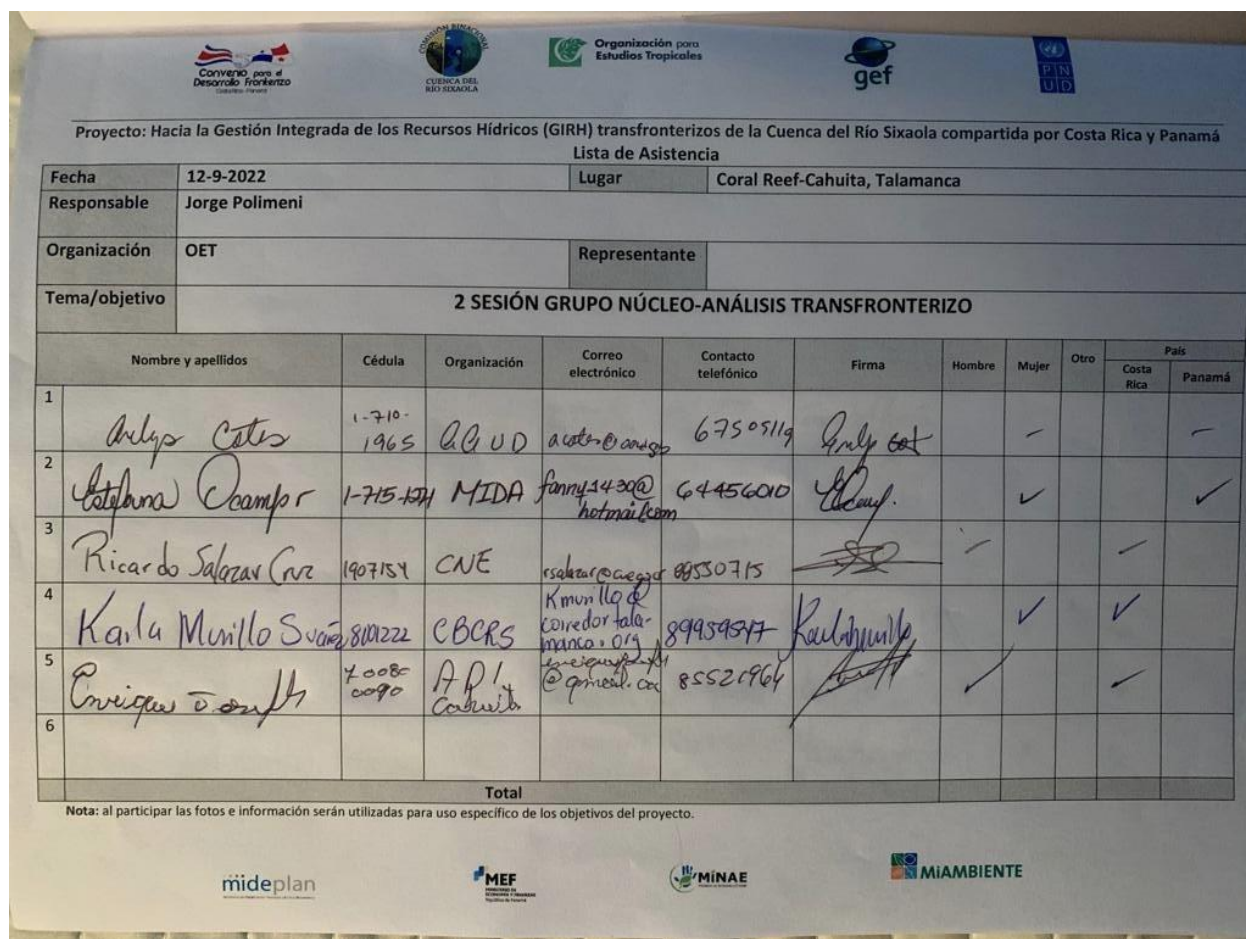 Convenio para el
Desarrollo Fronterizo
COMISIÓN BINACIONAL
CUENCA DEL
RÍO SIXAOLA
Organización para
Estudios Tropicales
gef
PNUD
Proyecto: Hacia la Gestión Integrada de los Recursos Hídricos (GIRH) transfronterizos de la Cuenca del Río Sixaola compartida por Costa Rica y Panamá
Lista de Asistencia
Fecha 12-9-2022 Lugar Coral Reef-Cahuita, Talamanca
Responsable Jorge Polimeni
Organización OET Representante
Tema/objetivo 2 SESIÓN GRUPO NÚCLEO-ANÁLISIS TRANSFRONTERIZO
Nombre y apellidos Cédula Organización Correo electrónico Contacto telefónico Firma Hombre Mujer Otro País
Costa Rica Panamá
1 1-710-1965 67505119
2 Ocampo MIDA fanny1430@hotmail.com 64456010
3 Ricardo Salazar Cruz 1907154 CNE 88530715
4 Karla Murillo 8001222 CBCRS Kmurillo@corredortalamanca.org 89959547
5 Enrique Cahuita 85521964
6
Total
Nota: al participar las fotos e información serán utilizadas para uso específico de los objetivos del proyecto.
mideplan
MEF
MINAE
MiAMBIENTE